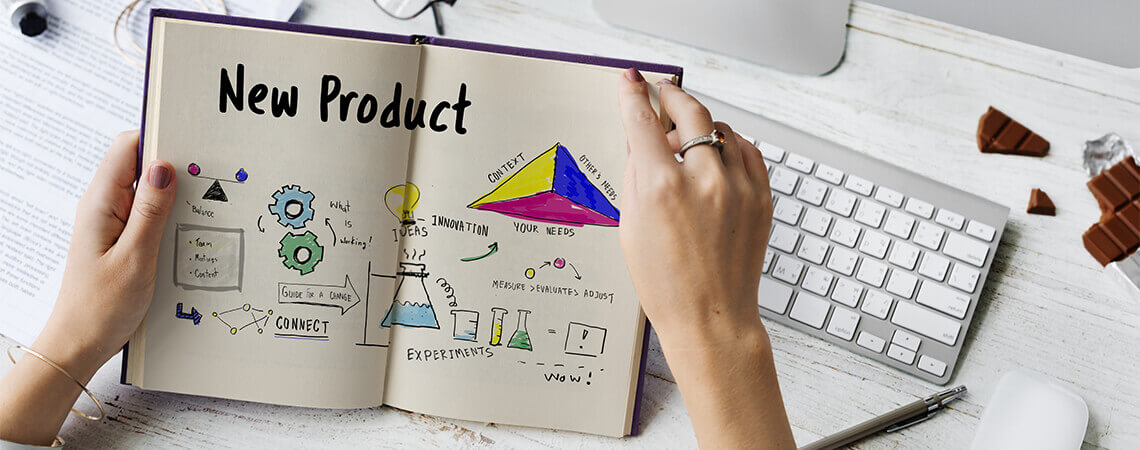 New Product
Balance
Team
Meetings
Content
What
is
working!
GUIDE FOR A CHANGE
CONNECT
IDEAS - INNOVATION
CONTEXT
OTHER'S NEEDS
YOUR NEEDS
MEASURE > EVALUATE > ADJUST
EXPERIMENTS
= !
WOW!